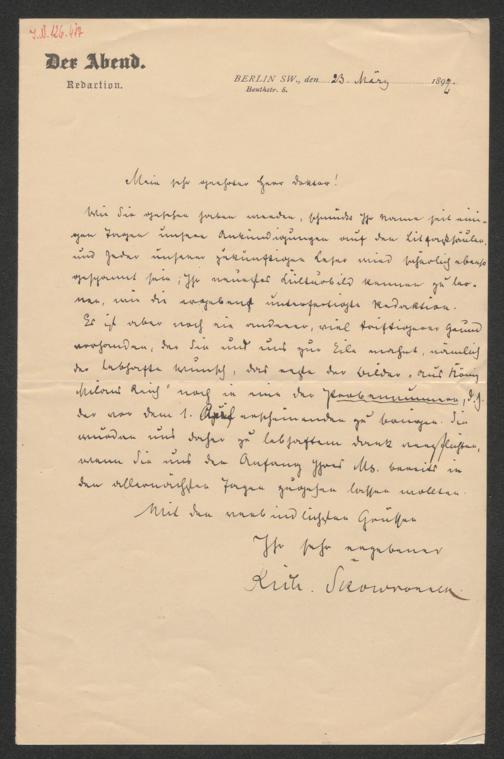 J.N. 126.417
Der Abend.
Redaction.
BERLIN SW., den 23. März 1892.
Beuthstr. 8.
Mein sehr geehrter Herr Doktor!
Wie Sie gesehen haben werden, schmückt Ihr Name seit eini-
gen Tagen unsere Ankündigungen auf den Litfaßsäulen,
und Jeder unserer zukünftigen Leser wird sicherlich ebenso
gespannt sein, Ihr neuestes Kulturbild kennen zu ler-
nen, wie die ergebenst unterfertigte Redaktion.
Es ist aber noch ein anderer, viel triftigerer Grund
vorhanden, der Sie und uns zur Eile mahnt, nämlich
der lebhafte Wunsch, das erste der Bilder „Aus König
Milans Reich“ noch in einer der Probenummern, d. h.
der vor dem 1. April erscheinenden zu bringen. Sie
würden uns daher zu lebhaftem Dank verpflichten,
wenn Sie uns den Anfang Ihres Ms. bereits in
den allernächsten Tagen zugehen lassen wollten.
Mit den verbindlichsten Grüssen
Ihr sehr ergebener
Rich. Skowronnek.